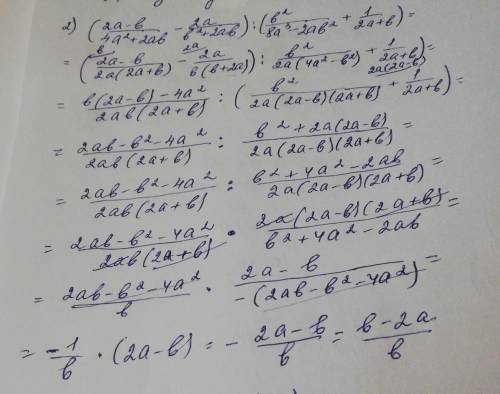 2) ((2a-b)/(4a²+2ab) - 2a/(b²+2ab)) : (b²/(8a³-2ab²) + 1/(2a+b)) =
= ((2a-b)/(2a(2a+b)) - 2a/(b(b+2a))) : (b²/(2a(4a²-b²)) + 1/(2a+b)) =
= (b(2a-b)-4a²)/(2ab(2a+b)) : (b²/(2a(2a-b)(2a+b)) + 1/(2a+b)) =
= (2ab-b²-4a²)/(2ab(2a+b)) : (b²+2a(2a-b))/(2a(2a-b)(2a+b)) =
= (2ab-b²-4a²)/(2ab(2a+b)) : (b²+4a²-2ab)/(2a(2a-b)(2a+b)) =
= (2ab-b²-4a²)/(2ab(2a+b)) · (2a(2a-b)(2a+b))/(b²+4a²-2ab) =
= (2ab-b²-4a²)/b · (2a-b)/(-(2ab-b²-4a²)) =
= -1/b · (2a-b) = - (2a-b)/b = (b-2a)/b